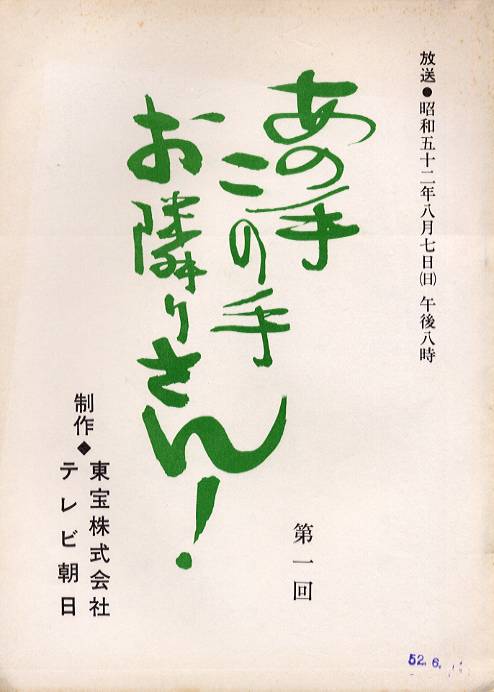 放送●昭和五十二年八月七日(日) 午後八時
あの手
この手
お隣りさん!
第一回
制作◆東宝株式会社
テレビ朝日
52.6.